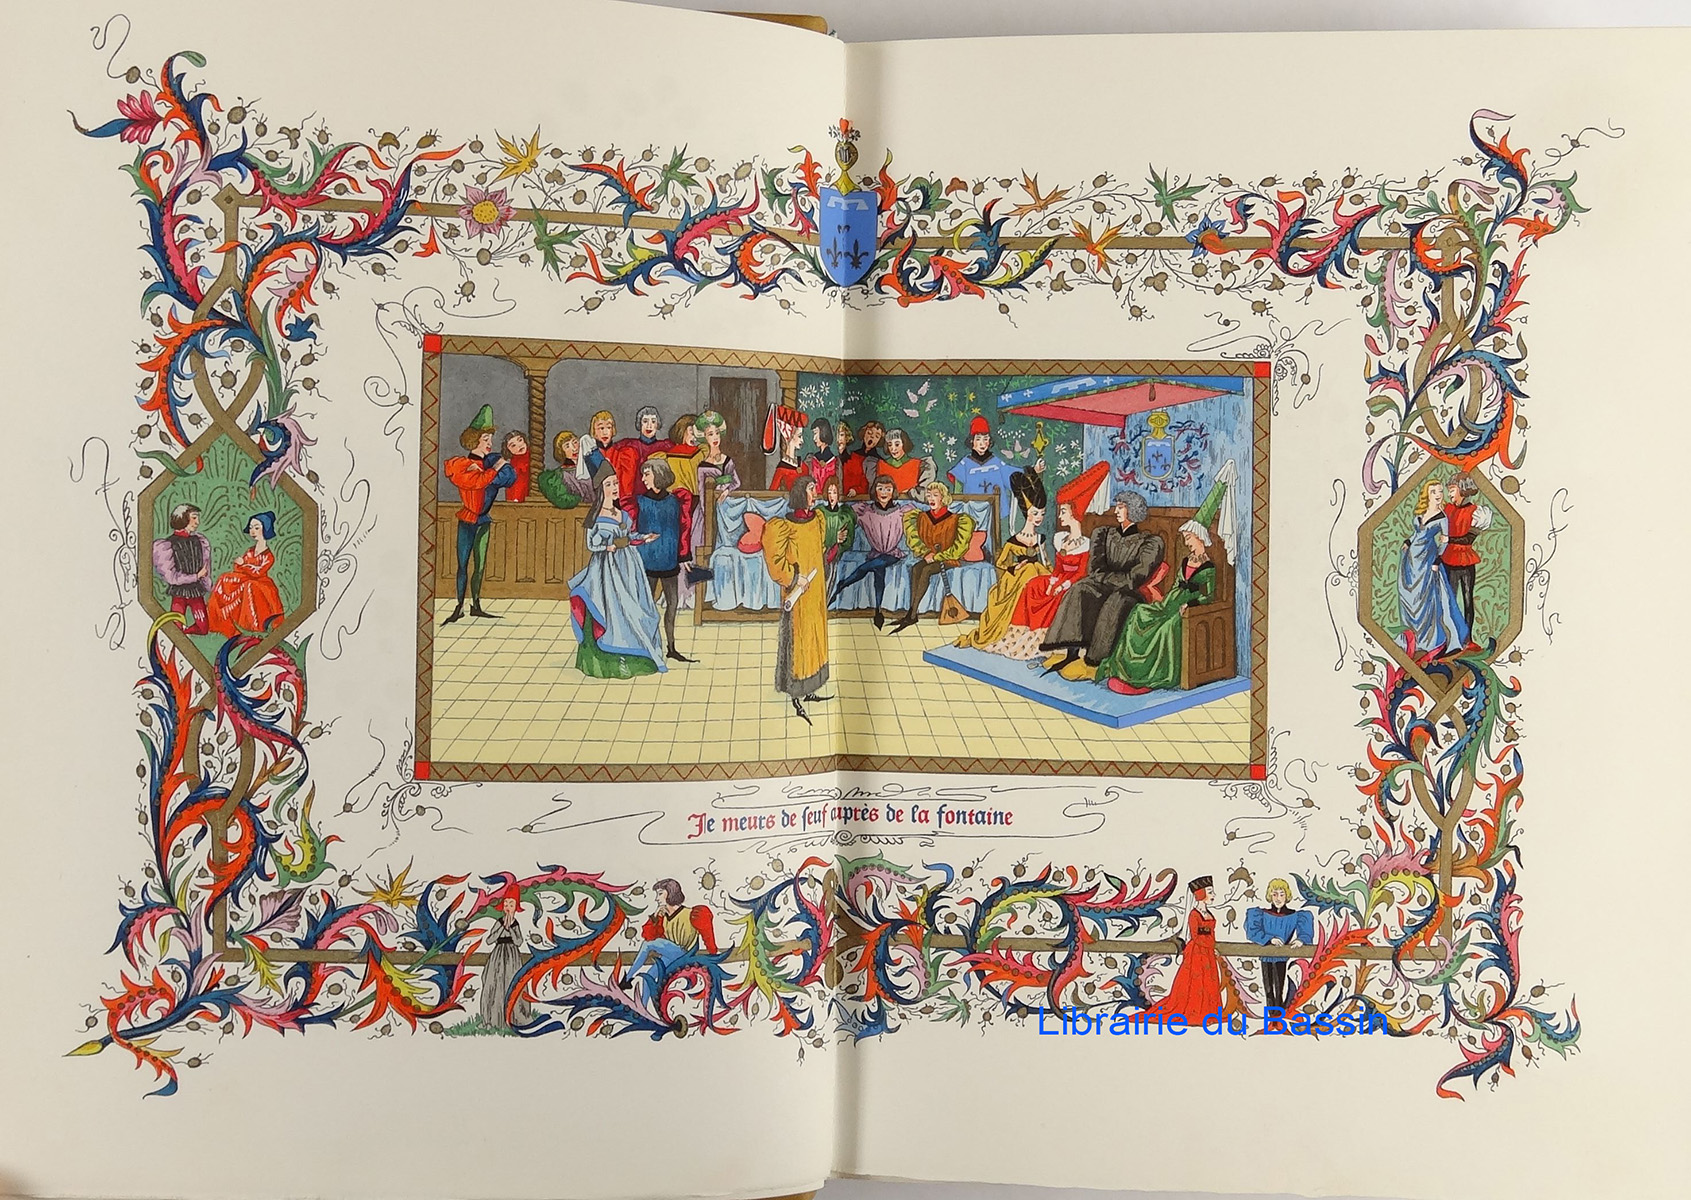 Je meurs de seuf auprès de la fontaine
Librairie du Bassin